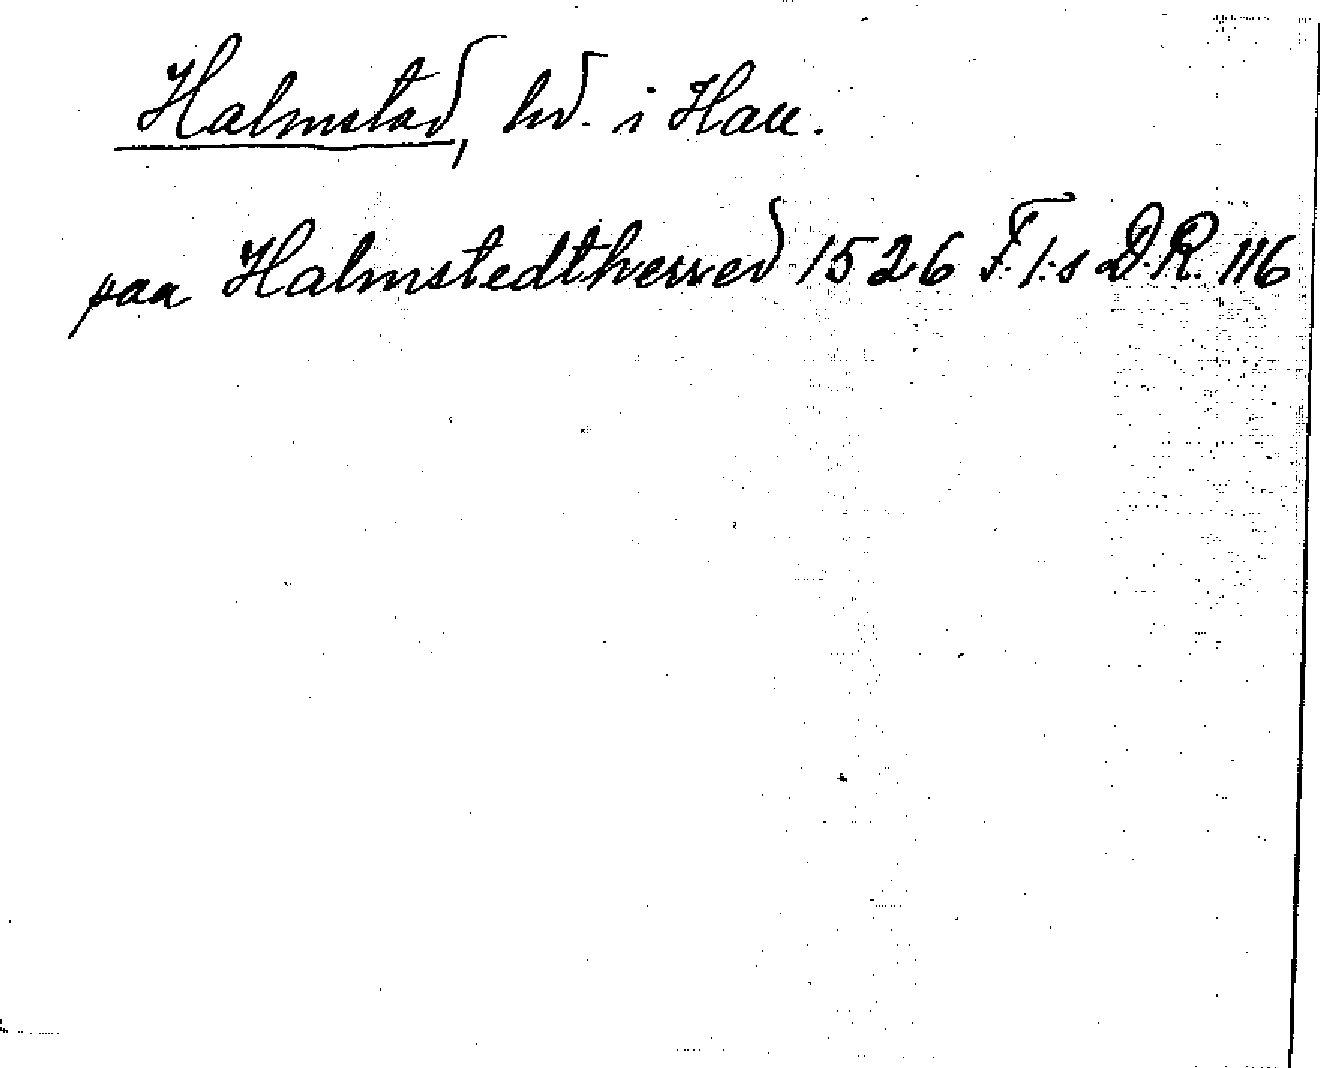 Halmstad, hd. i Hall.
paa Halmstedtherred 1526 F. I:s D.R. 116